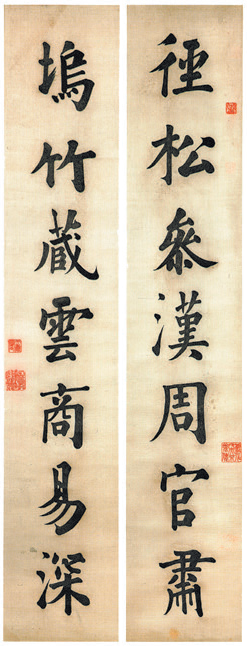 徑松參漢周官肅
塢竹藏雲商易深